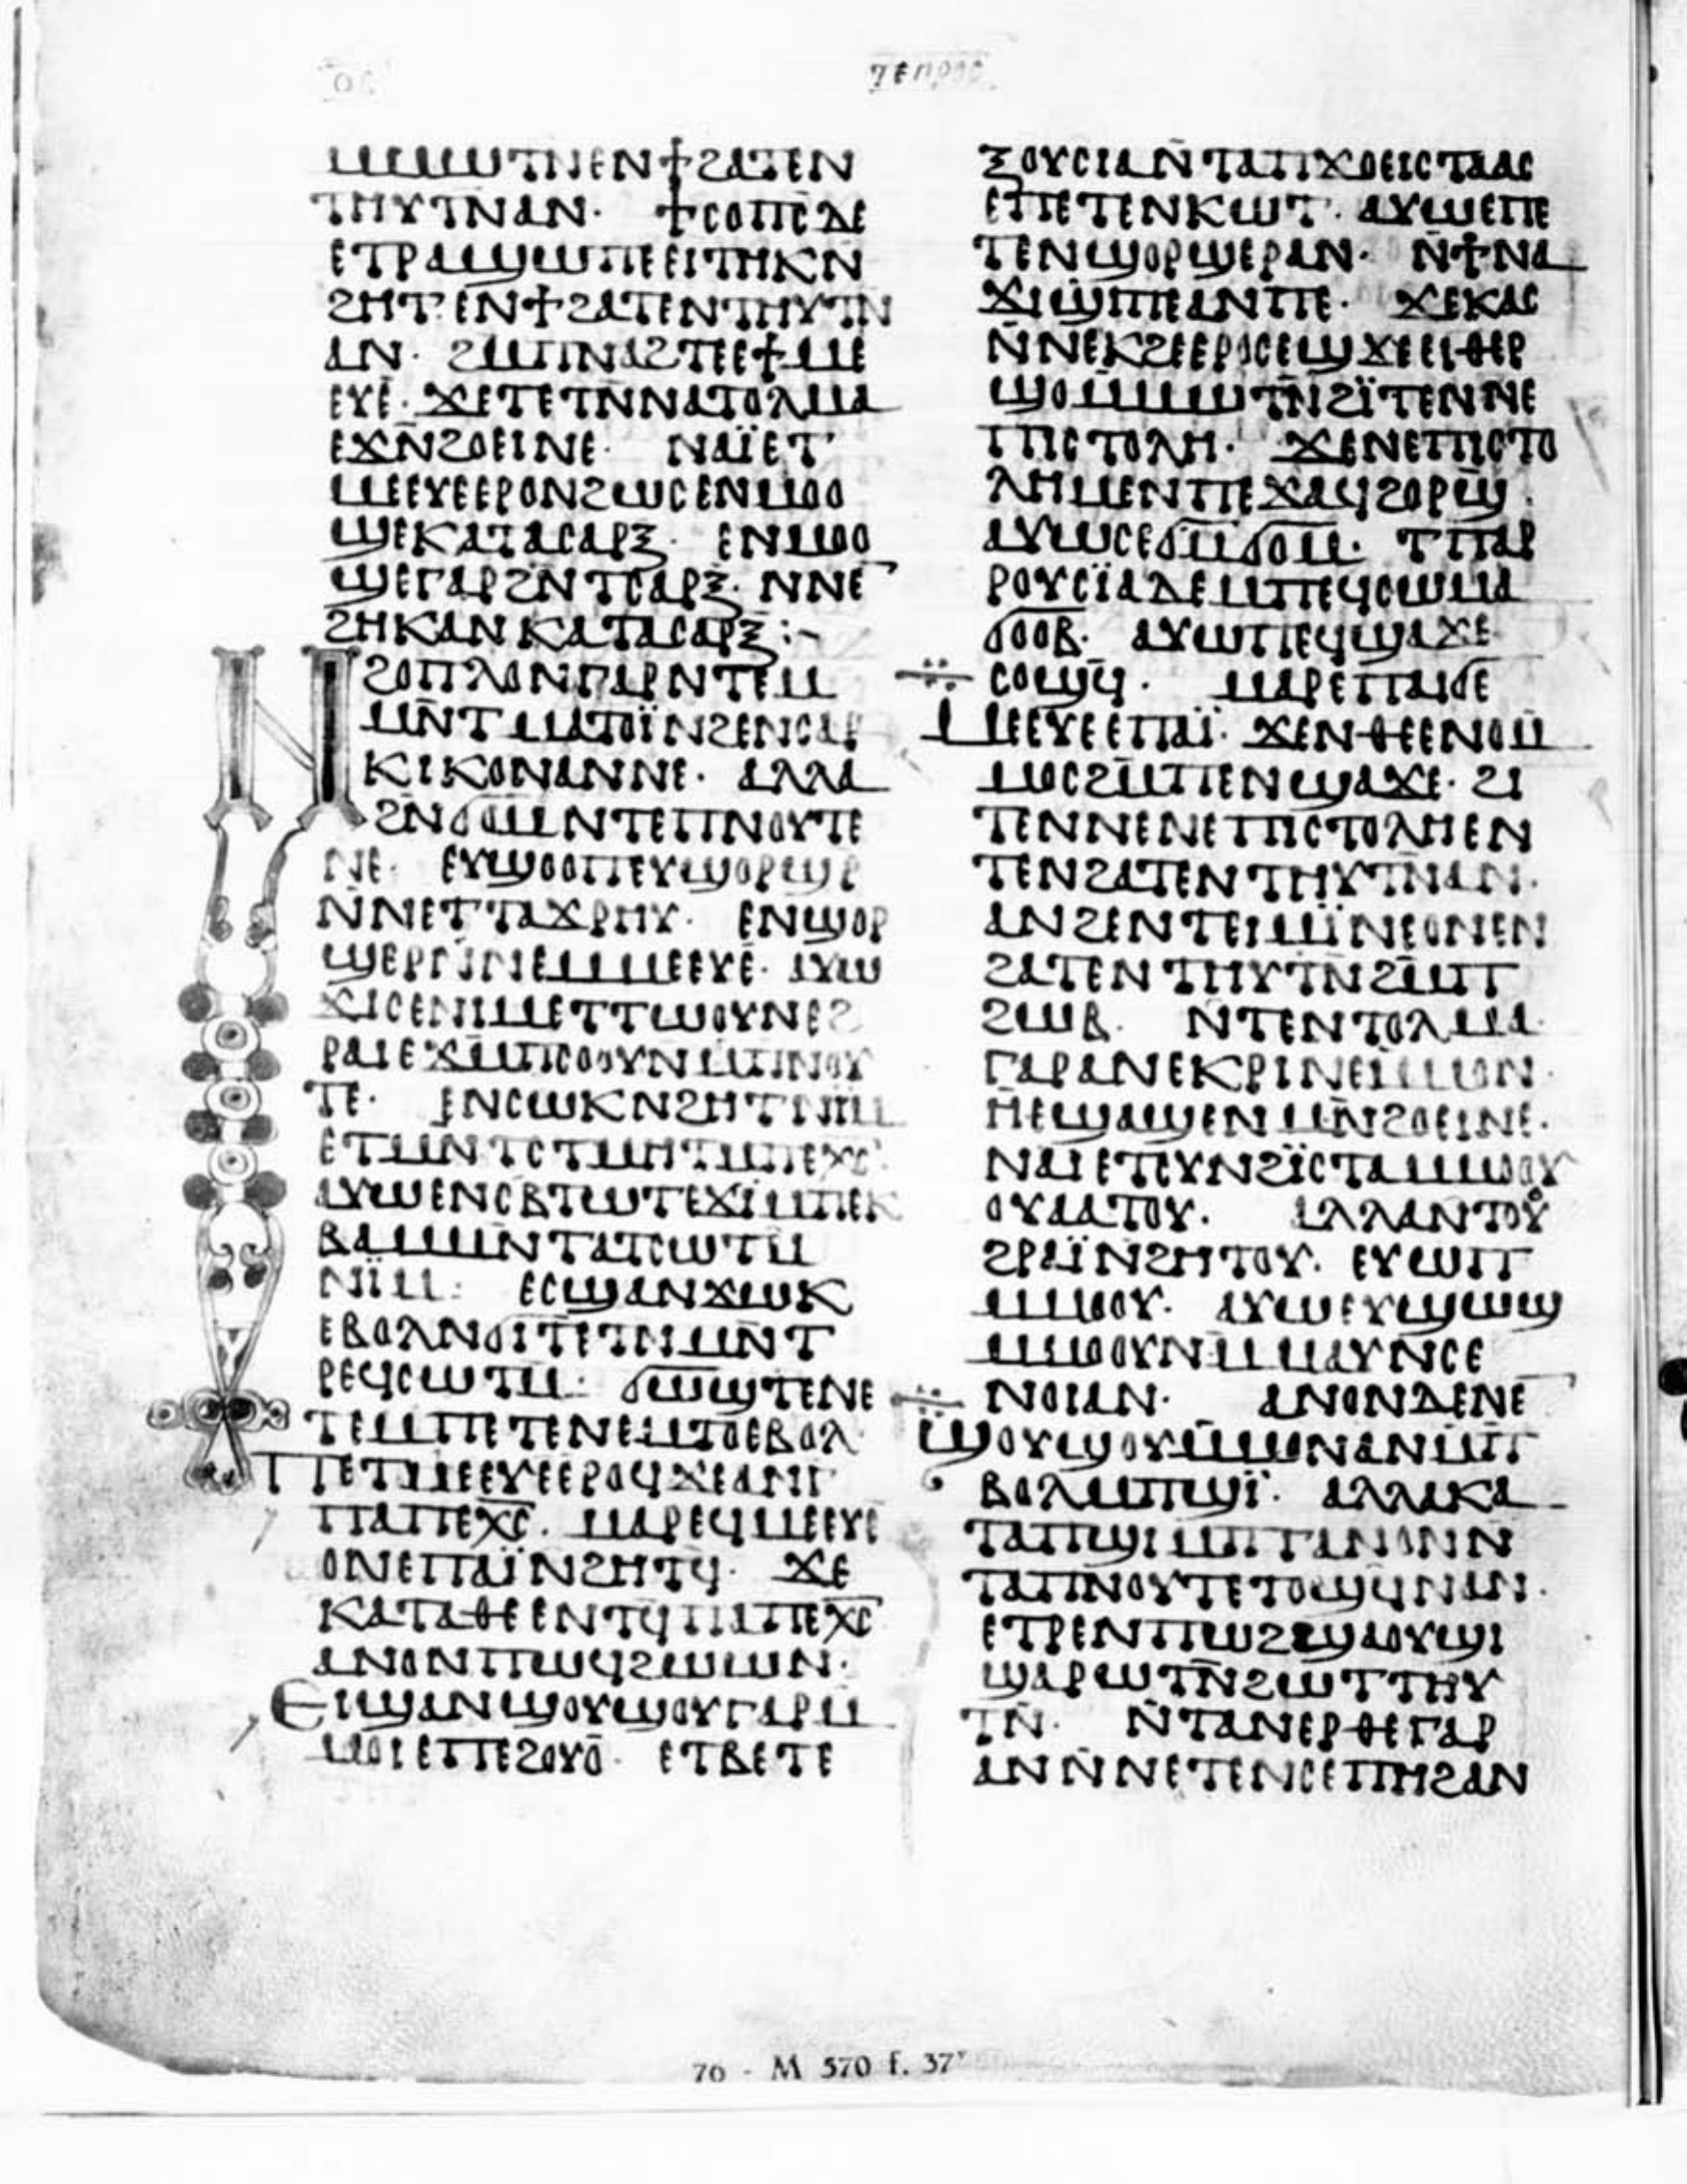 ⲙⲙⲱⲧⲛ ⲉⲛϯϩⲁⲧⲉⲛ
ⲧⲏⲩⲧⲛ ⲁⲛ· ϯⲥⲟⲡⲥ ⲇⲉ
ⲉⲧⲣⲁϣⲱⲡⲉ ⲉⲓⲧⲏⲕ ⲛ
ϩⲏⲧ ⲉⲛϯϩⲁⲧⲉⲛⲧⲏⲩⲧⲛ
ⲁⲛ· ϩⲙⲡⲛⲁϩⲧⲉ ⲉϯⲙⲉ
ⲉⲩⲉ· ϫⲉ ⲧⲉⲧⲛⲛⲁⲧⲟⲗⲙⲁ
ⲉϫⲛ̄ϩⲟⲉⲓⲛⲉ· ⲛⲁⲓ̈ ⲉⲧ
ⲙⲉⲉⲩⲉ ⲉⲣⲟⲛ ϩⲱⲥ ⲉⲛⲙⲟⲟ
ϣⲉ ⲕⲁⲧⲁⲥⲁⲣⲝ· ⲉⲛⲙⲟⲟ
ϣⲉ ⲅⲁⲣ ϩⲛ ⲧⲥⲁⲣⲝ· ⲛⲛⲉ
ϩⲏⲕ ⲁⲛ ⲕⲁⲧⲁⲥⲁⲣⲝ :~
ⲛϩⲟⲡⲗⲟⲛ ⲅⲁⲣ ⲛⲧⲉⲙ
ⲙⲛ̄ⲧⲙⲁⲧⲟⲓ̈ ⲛϩⲉⲛⲥⲁⲣ
ⲕⲓⲕⲟⲛ ⲁⲛ ⲛⲉ· ⲁⲗⲗⲁ
ϩⲛϭⲟⲙ ⲛⲧⲉⲡⲛⲟⲩⲧⲉ
ⲛⲉ· ⲉⲩϣⲟⲟⲡ ⲉⲩϣⲟⲣϣⲣ
ⲛ̄ⲛⲉⲧⲧⲁϫⲣⲏⲩ· ⲉⲛϣⲟⲣ
ϣⲉⲣ ⲅⲓⲛⲉⲙⲙⲉⲉⲩⲉ· ⲁⲩⲱ
ϫⲓⲥⲉ ⲛⲓⲙ ⲉⲧⲧⲱⲟⲩⲛ ⲉϩ
ⲣⲁⲓ ⲉϫⲙⲡⲥⲟⲟⲩⲛ ⲙⲡⲛⲟⲩ
ⲧⲉ· ⲉⲛⲥⲱⲕ ⲛϩⲏⲧ ⲛⲓⲙ
ⲉⲧⲙⲛⲧⲥⲧⲙⲏⲧ ⲙⲡⲉⲭⲥ̄·
ⲁⲩⲱ ⲉⲛⲥⲃⲧⲱⲧ ⲉϫⲓ ⲙⲡⲉⲕ
ⲃⲁ ⲙⲙⲛⲧⲁⲧⲥⲱⲧⲙ
ⲛⲓ̈ⲙ: ⲉⲥϣⲁⲛϫⲱⲕ
ⲉⲃⲟⲗ ⲛϭⲓ ⲧⲉⲧⲛⲙⲛⲧ
ⲣⲉϥⲥⲱⲧⲙ· ϭⲱϣⲧ ⲉⲛⲉ
ⲧⲉⲙⲡⲉⲧⲉⲛⲉⲙⲧⲟ ⲉⲃⲟⲗ·
ⲡⲉⲧⲙⲉⲉⲩⲉ ⲉⲣⲟϥ ϫⲉ ⲁⲛⲅ
ⲡⲁⲡⲉⲭⲥ̄· ⲙⲁⲣⲉϥⲙⲉⲉⲩⲉ
ⲟⲛ ⲉⲡⲁⲓ̈ ⲛϩⲏⲧϥ· ϫⲉ
ⲕⲁⲧⲁⲑⲉ ⲉⲛⲧϥⲡⲁⲡⲉⲭⲥ̄
ⲁⲛⲟⲛ ⲡⲱϥ ϩⲱⲱⲛ·
ⲉⲓϣⲁⲛϣⲟⲩϣⲟⲩ ⲅⲁⲣ ⲙ
ⲙⲟⲓ ⲉⲡⲉϩⲟⲩⲟ̄· ⲉⲧⲃⲉ ⲧⲉ
ⲝⲟⲩⲥⲓⲁ ⲛ̄ⲧⲁⲡϫⲟⲉⲓⲥ ⲧⲁⲁⲥ
ⲉⲡⲉⲧⲉⲛⲕⲱⲧ· ⲁⲩⲱ ⲉⲡⲉ
ⲧⲉⲛϣⲟⲣϣⲉⲣ ⲁⲛ· ⲛ̄ϯⲛⲁ
ϫⲓϣⲡⲉ ⲁⲛ ⲡⲉ· ϫⲉⲕⲁⲥ
ⲛ̄ⲛⲉⲕϩⲉ ⲉⲣⲟⲥ ⲉϣϫⲉ ⲉⲓⲑⲉⲣ
ϣⲟ ⲙ̄ⲙⲱⲧⲛ ϩⲓ̈ⲧⲉⲛⲛⲉ
ⲡⲓⲥⲧⲟⲗⲏ· ϫⲉ ⲛⲉⲡⲓⲥⲧⲟ
ⲗⲏ ⲙⲉⲛ ⲡⲉϫⲁϥ ϩⲟⲣϣ·
ⲁⲩⲱ ⲥⲉϭⲙϭⲟⲙ· ⲧⲡⲁⲣ
ⲣⲟⲩⲥⲓ̈ⲁ ⲇⲉ ⲙⲡⲉϥⲥⲱⲙⲁ
ϭⲟⲟⲃ· ⲁⲩⲱ ⲡⲉϥϣⲁϫⲉ
ⲥⲟϣϥ̄· ⲙⲁⲣⲉⲡⲁⲓϭⲉ
ⲙⲉⲉⲩⲉ ⲉⲡⲁⲓ̈· ϫⲉ ⲛⲑⲉ ⲉⲛⲟⲙ̄
ⲙⲟⲥ ϩⲙⲡⲉⲛϣⲁϫⲉ· ϩⲓ
ⲧⲉⲛⲛⲉⲛⲉⲡⲓⲥⲧⲟⲗⲏ ⲉⲛ
ⲧⲉⲛϩⲁⲧⲉⲛⲧⲏⲩⲧⲛ ⲁⲛ·
ⲁⲛϩⲉⲛⲧⲉⲓⲙⲓ̈ⲛⲉ ⲟⲛ ⲉⲛ
ϩⲁⲧⲉⲛⲧⲏⲩⲧⲛ ϩⲙⲡ
ϩⲱⲃ· ⲛ̄ⲧⲉⲛⲧⲟⲗⲙⲁ
ⲅⲁⲣ ⲁⲛ ⲉⲕⲣⲓⲛⲉ ⲙⲙⲟⲛ·
ⲏ ⲉϣⲁϣⲉⲛ ⲙⲛ̄ϩⲟⲉⲓⲛⲉ·
ⲛⲁⲓ ⲉⲧⲥⲩⲛϩⲓ̈ⲥⲧⲁ ⲙⲙⲟⲟⲩ
ⲟⲩⲁⲁⲧⲟⲩ· ⲁⲗⲗⲁ ⲛⲧⲟⲟⲩ
ϩⲣⲁⲓ̈ ⲛϩⲏⲧⲟⲩ· ⲉⲩⲱⲡ
ⲙⲙⲟⲟⲩ· ⲁⲩⲱ ⲉⲩϣⲱϣ
ⲙⲙⲟⲟⲩ ⲛⲙⲙⲁⲩ ⲛⲥⲉ
ⲛⲟⲓ ⲁⲛ· ⲁⲛⲟⲛ ⲇⲉ ⲛⲉ
ϣⲟⲩϣⲟⲩ ⲙ̄ⲙⲟⲛ ⲁⲛ ⲙⲡ
ⲃⲟⲗ ⲙⲡϣⲓ̈· ⲁⲗⲗⲁ ⲕⲁ
ⲧⲁⲡϣⲓ ⲙⲡⲕⲁⲛⲱⲛ ⲛ
ⲧⲁⲡⲛⲟⲩⲧⲉ ⲧⲟϣϥ ⲛⲁⲛ·
ⲉⲧⲣⲉⲛⲡⲱϩ ϣⲁⲟⲩϣⲓ
ϣⲁⲣⲱⲧⲛ̄ ϩⲱⲧⲧⲏⲩ
ⲧⲛ̄· ⲛ̄ⲧⲁⲛⲉⲣⲑⲉ ⲅⲁⲣ
ⲁⲛ ⲛ̄ⲛⲉⲧⲉⲛⲥⲉⲡⲏϩ ⲁⲛ
76 - M 570 f. 37ᵛ